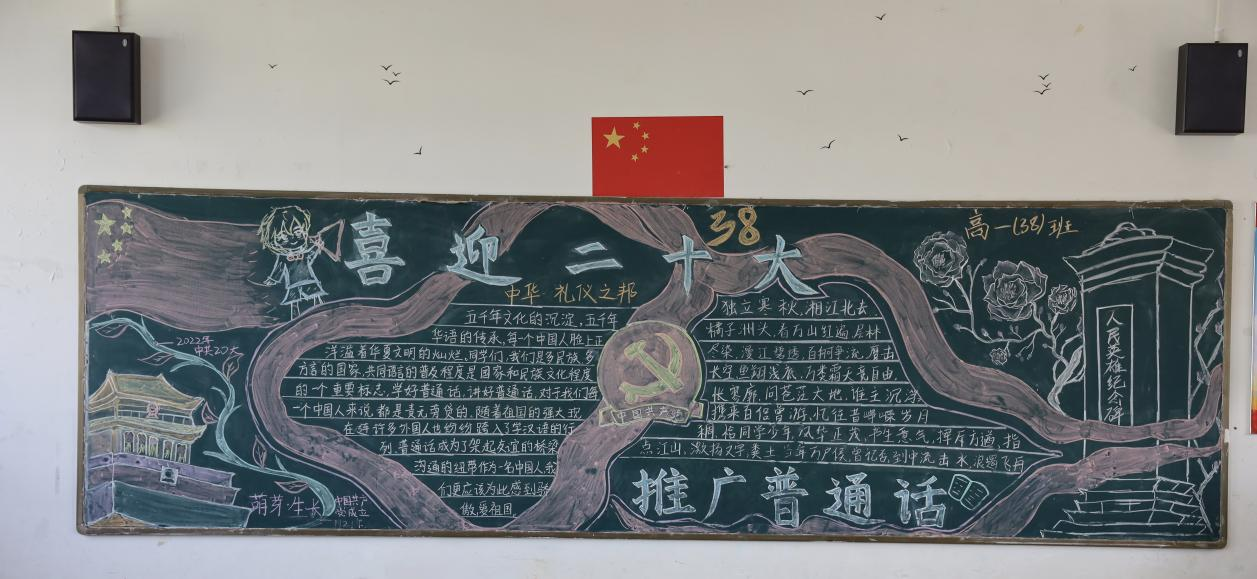 喜迎二十大
38
高一(38)班
中华·礼仪之邦
五千年文化的沉淀,五千年
华语的传承,每个中国人脸上正
洋溢着华夏文明的灿烂,同学们,我们是多民族,多
方言的国家,共同语言的普及程度是国家和民族文化程度
的一个重要标志,学好普通话,讲好普通话,对于我们每
一个中国人来说,都是责无旁贷的,随着祖国的强大,现
在许多外国人也纷纷踏入了学汉语的行
列,普通话成为了架起友谊的桥梁
沟通的纽带作为一名中国人我
们更应该为此感到骄
傲,爱祖国
独立寒秋,湘江北去
橘子洲头,看万山红遍,层林
尽染,漫江碧透,百舸争流,鹰击
长空,鱼翔浅底,万类霜天竞自由,
怅寥廓,问苍茫大地,谁主沉浮
携来百侣曾游,忆往昔峥嵘岁月
稠,恰同学少年,风华正茂,书生意气,挥斥方遒,指
点江山,激扬文字,粪土当年万户侯,曾记否,到中流击水,浪遏飞舟
推广普通话
2022年
中共20大
萌芽·生长
中国共产
党成立
中国共产党
人民英雄纪念碑